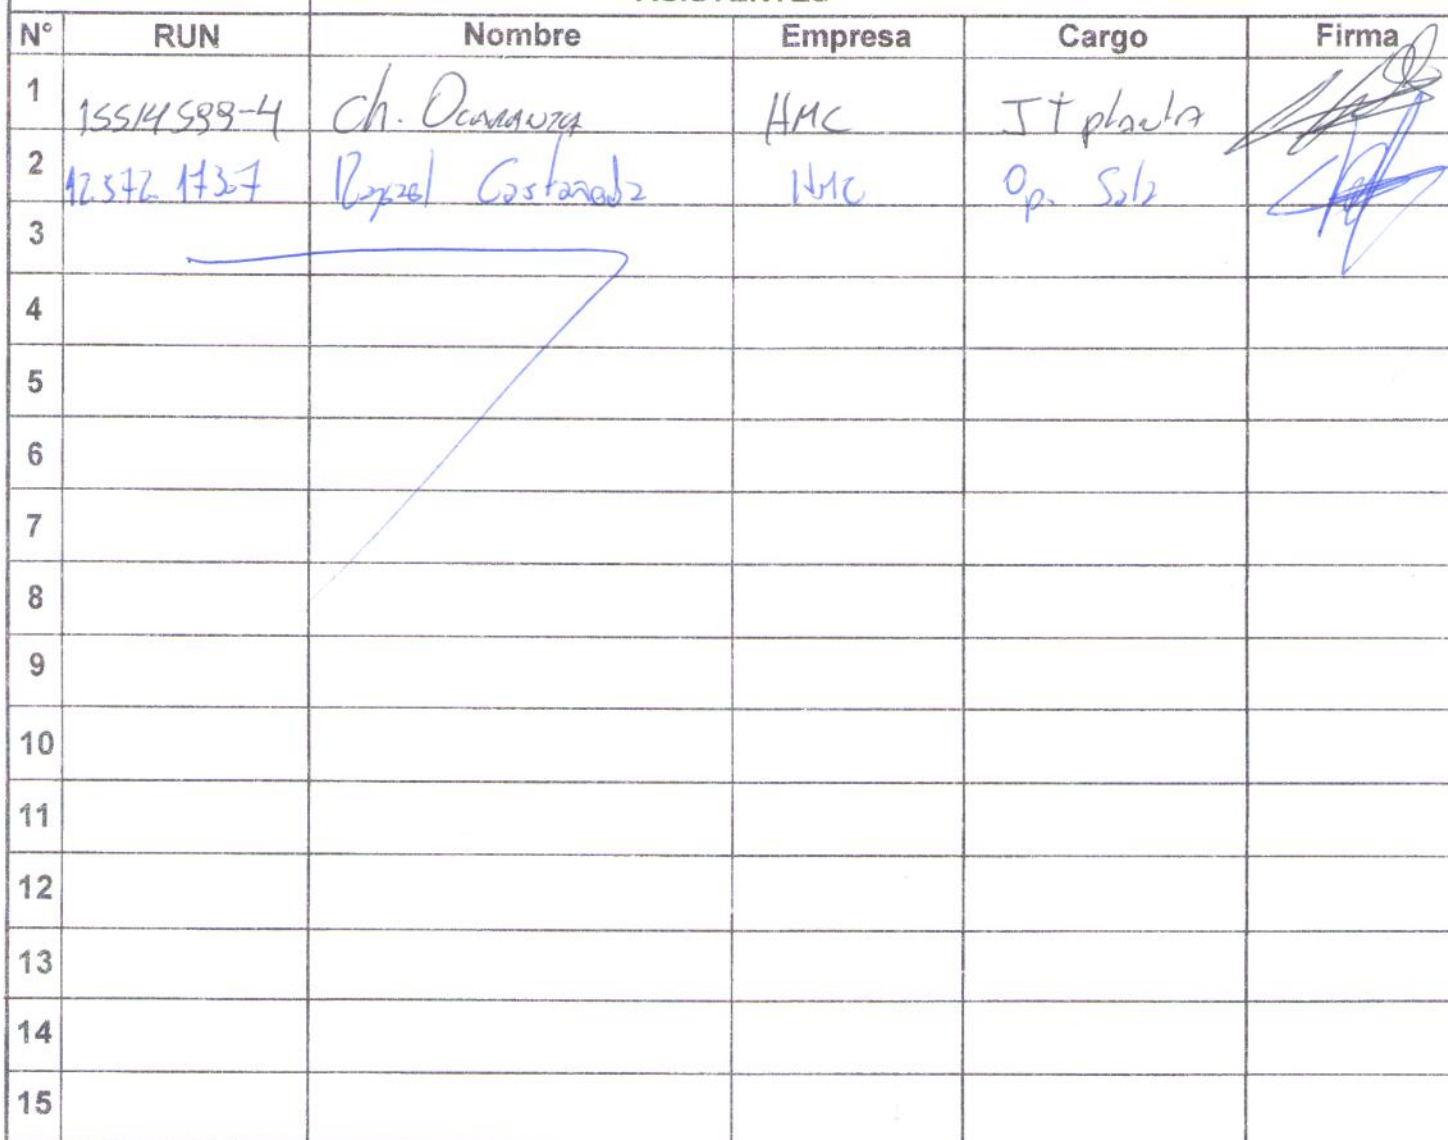 N° RUN Nombre Empresa Cargo Firma
1 15514599-4 Ch. Ocaranza HMC JT planta
2 12.572.173-7 Rafael Castañeda HMC Op. Sala
3
4
5
6
7
8
9
10
11
12
13
14
15